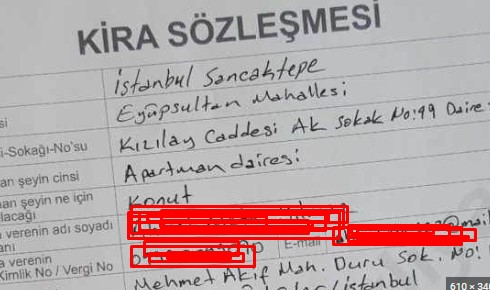 KİRA SÖZLEŞMESİ
İstanbul Sancaktepe
si Eyüpsultan Mahallesi
i-Sokağı-No'su Kızılay Caddesi Ak Sokak No:99 Daire
an şeyin cinsi Apartman dairesi
an şeyin ne için Konut
lacağı
verenin adı soyadı
anı
E-mail @mail
a verenin
Kimlik No / Vergi No Mehmet Akif Mah. Duru Sok. No!
İstanbul
610 × 340